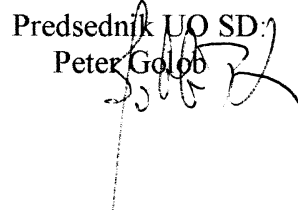 Predsednik UO SD:
Peter Golob